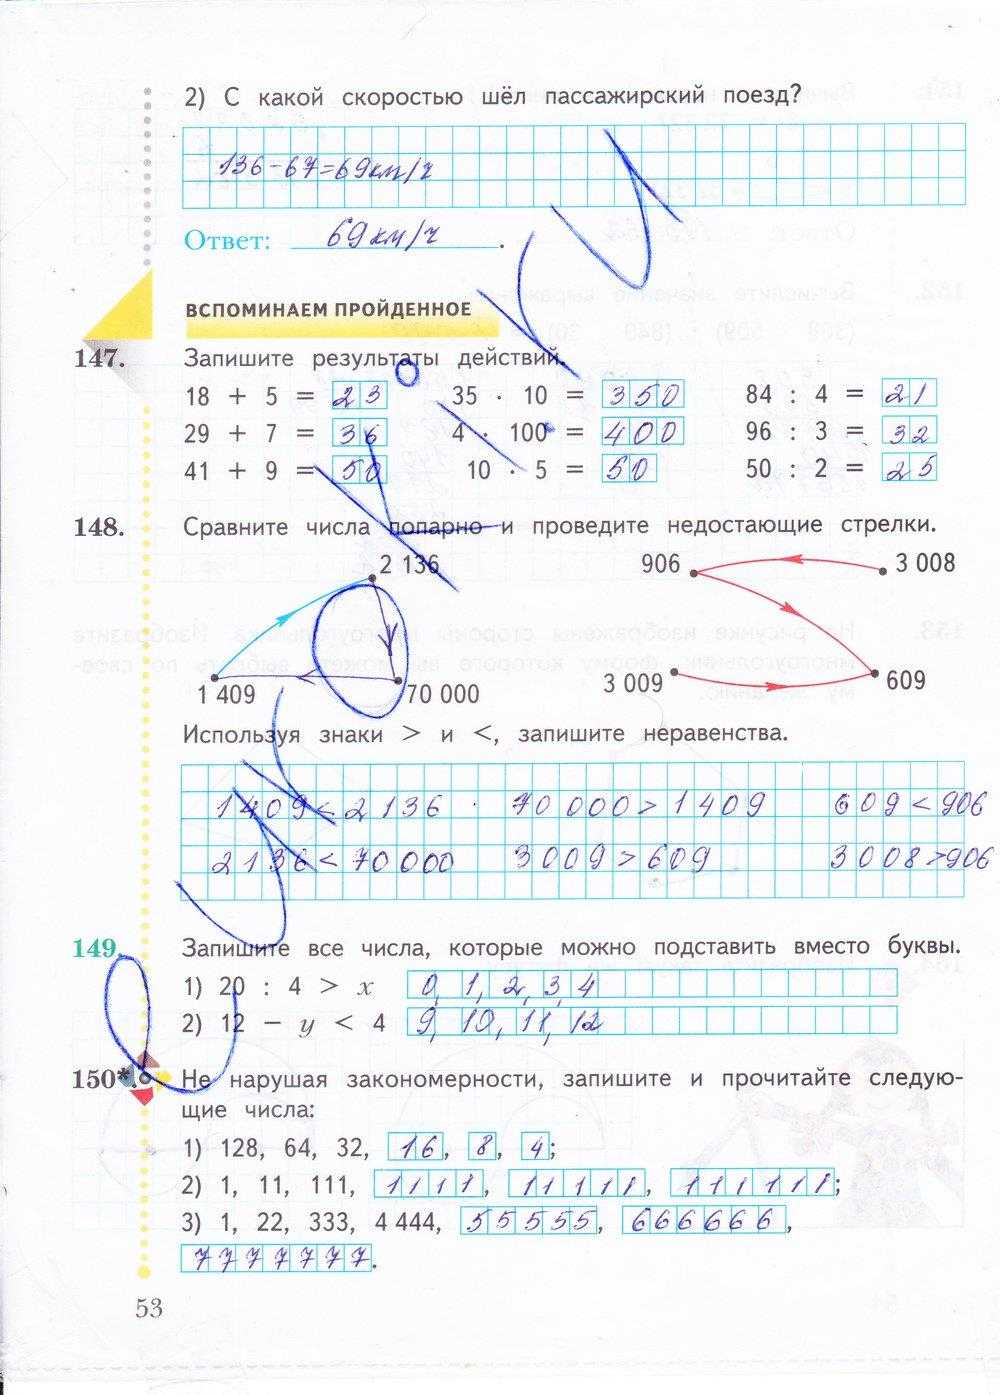 2) С какой скоростью шёл пассажирский поезд?
136-67=69км/ч
Ответ: 69км/ч.
ВСПОМИНАЕМ ПРОЙДЕННОЕ
147. Запишите результаты действий.
18 + 5 = 23 35 · 10 = 350 84 : 4 = 21
29 + 7 = 36 4 · 100 = 400 96 : 3 = 32
41 + 9 = 50 10 · 5 = 50 50 : 2 = 25
148. Сравните числа попарно и проведите недостающие стрелки.
2 136 906 3 008
1 409 70 000 3 009 609
Используя знаки > и <, запишите неравенства.
1409<2136 70 000>1409 609<906
2136<70000 3009>609 3008>906
149. Запишите все числа, которые можно подставить вместо буквы.
1) 20 : 4 > x 0, 1, 2, 3, 4
2) 12 − y < 4 9, 10, 11, 12
150*. Не нарушая закономерности, запишите и прочитайте следую-
щие числа:
1) 128, 64, 32, 16, 8, 4;
2) 1, 11, 111, 1111, 11111, 111111;
3) 1, 22, 333, 4 444, 55555, 666666,
7777777.
53